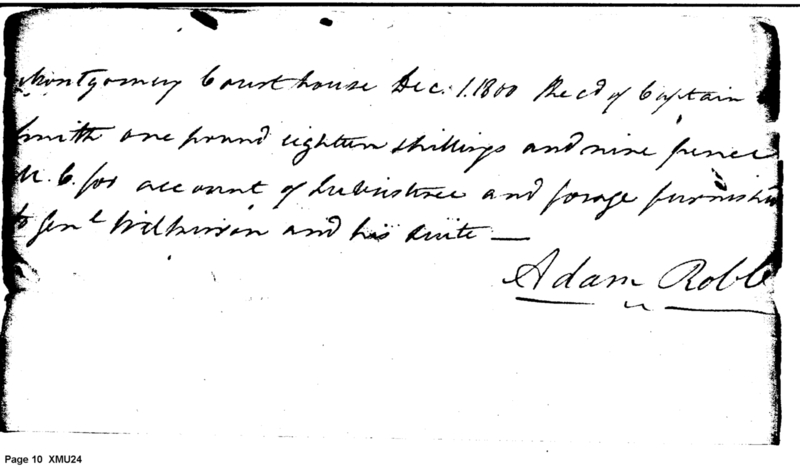 Montgomery Courthouse Dec. 1. 1800 Recd of Captain
Smith one pound eighteen shillings and nine pence
for account of Subsistence and forage furnish
to Genl Wilkinson and his suite —
Adam Roble
Page 10 XMU24